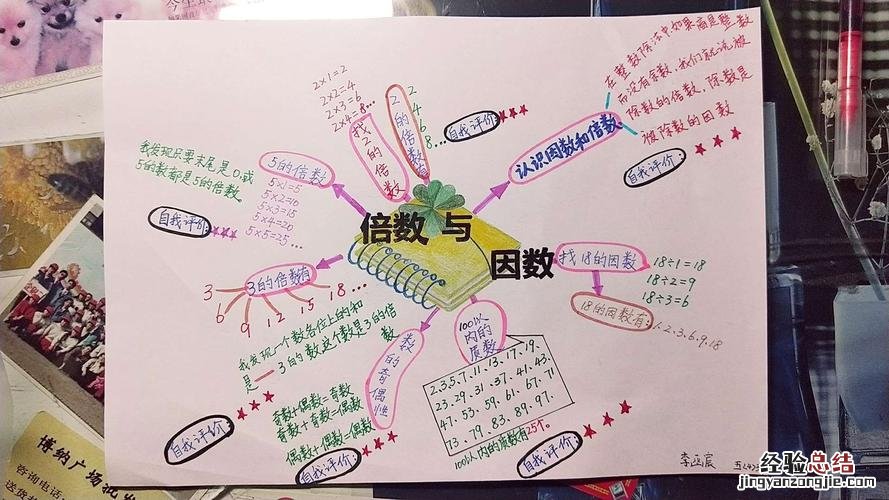 倍数与
因数
认识因数和倍数
在整数除法中,如果商是整数
而没有余数,我们就说被
除数是除数的倍数,除数是
被除数的因数
自我评价:
找2的倍数
2×1=2
2×2=4
2×3=6
2×4=8...
2的倍数有
2
4
6
8...
自我评价:
5的倍数
5×1=5
5×2=10
5×3=15
5×4=20
5×5=25...
我发现只要末尾是0或
5的数都是5的倍数。
自我评价:
3的倍数有
3 6 9 12 15 18...
我发现一个数各位上的和
是3的数这个数是3的倍
数
自我评价:
数的奇偶性
奇数+偶数=奇数
奇数+奇数=偶数
偶数+偶数=偶数
自我评价:
100以内的质数
2.3.5.7.11.13.17.19.
23.29.31.37.41.43.
47.53.59.61.67.71
73.79.83.89.97.
100以内的质数有25个。
自我评价:
找18的因数
18÷1=18
18÷2=9
18÷3=6
18的因数有:
1.2.3.6.9.18
博纳广场批发
咨询电话
送货
经验总结
jingyanzongjie.com